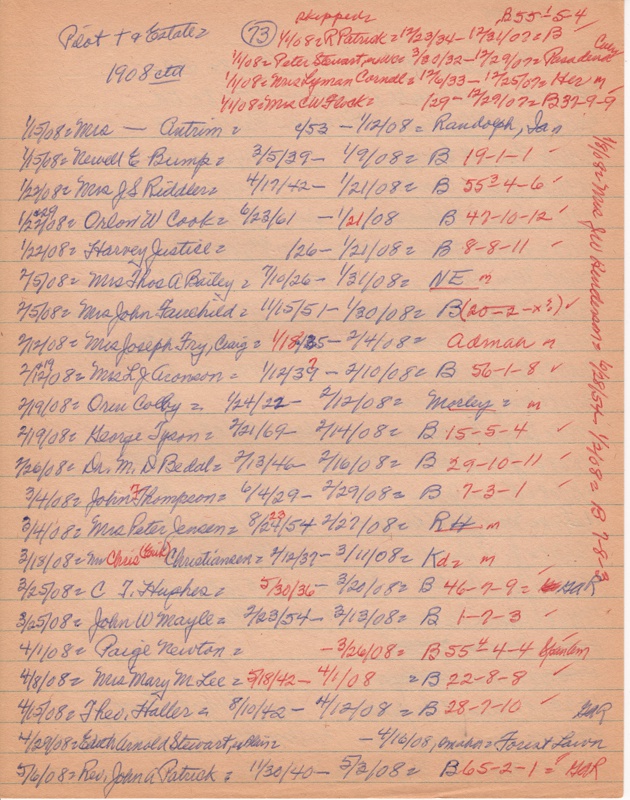 skipped= B 55-1-5-4
Pilot + a Estate= (73) 1/1/08= R Patrick= 12/23/34 - 12/31/07= B
1/1/08= Peter Stewart, 3/30/32 - 12/29/07= Pasadena Cal
1908 ctd 1/1/08= Mrs Lyman Cornell= 12/6/33 - 12/25/07= Her m
1/1/08= Mrs CW Flock= /29 - 12/29/07= B 37-9-9
1/15/08= Mrs — Antrim= c/53 - 1/12/08= Randolph, Ia n
1/15/08= Newell E Bump= 3/5/39 - 1/9/08= B 19-1-1 ✓
1/22/08= Mrs J S Riddler= 4/17/42 - 1/21/08= B 55-3-4-6 ✓
1/22/08= Orlon W Cook= 6/23/61 - 1/21/08 B 47-10-12 ✓
1/22/08= Harvey Justice= /26 - 1/21/08= B 8-8-11 ✓
2/5/08= Mrs Thos A Bailey= 7/10/26 - 1/31/08= NE m
2/5/08= Mrs John Fairchild= 11/15/51 - 1/30/08= B (20-2-x?) ✓
2/12/08= Mrs Joseph Fry, Craig= 1/18/35 - 2/4/08= Admah n
2/12/08= Mrs L J Aronson= 1/12/39? - 2/10/08= B 56-1-8 ✓
2/19/08= Oren Colby= 1/24/22 - 2/12/08= Morley= m
2/19/08= George Tyson= 2/21/69 - 2/14/08= B 15-5-4 ✓
2/26/08= Dr. M. D Bedal= 2/13/46 - 2/16/08= B 29-10-11 ✓
3/4/08= John ? Thompson= 6/4/29 - 2/29/08= B 7-3-1 ✓
3/4/08= Mrs Peter Jensen= 8/23/54 2/27/08= RH m
3/18/08= Mr Chris Christiansen= 2/12/37 - 3/11/08= Kd= m
3/25/08= C T. Hughes= 5/30/36 - 3/20/08= B 46-7-9= GAR
3/25/08= John W Mayle= 2/23/54 - 3/13/08= B 1-7-3 ✓
4/1/08= Paige Newton= - 3/26/08= B 55-4-4-4 SpanAm
4/8/08= Mrs Mary M Lee= 5/18/42 - 4/1/08 = B 22-8-8 ✓
4/15/08= Theo. Haller= 8/10/42 - 4/12/08= B 28-7-10 ✓ GAR
4/29/08= Edith Arnold Stewart, - 4/16/08, Omaha= Forest Lawn
5/6/08= Rev. John A Patrick= 11/30/40 - 5/2/08= B 65-2-1= GAR
1/8/08= Mrs JW Henderson= 6/28/54 - 1/2/08= B 7-8-3